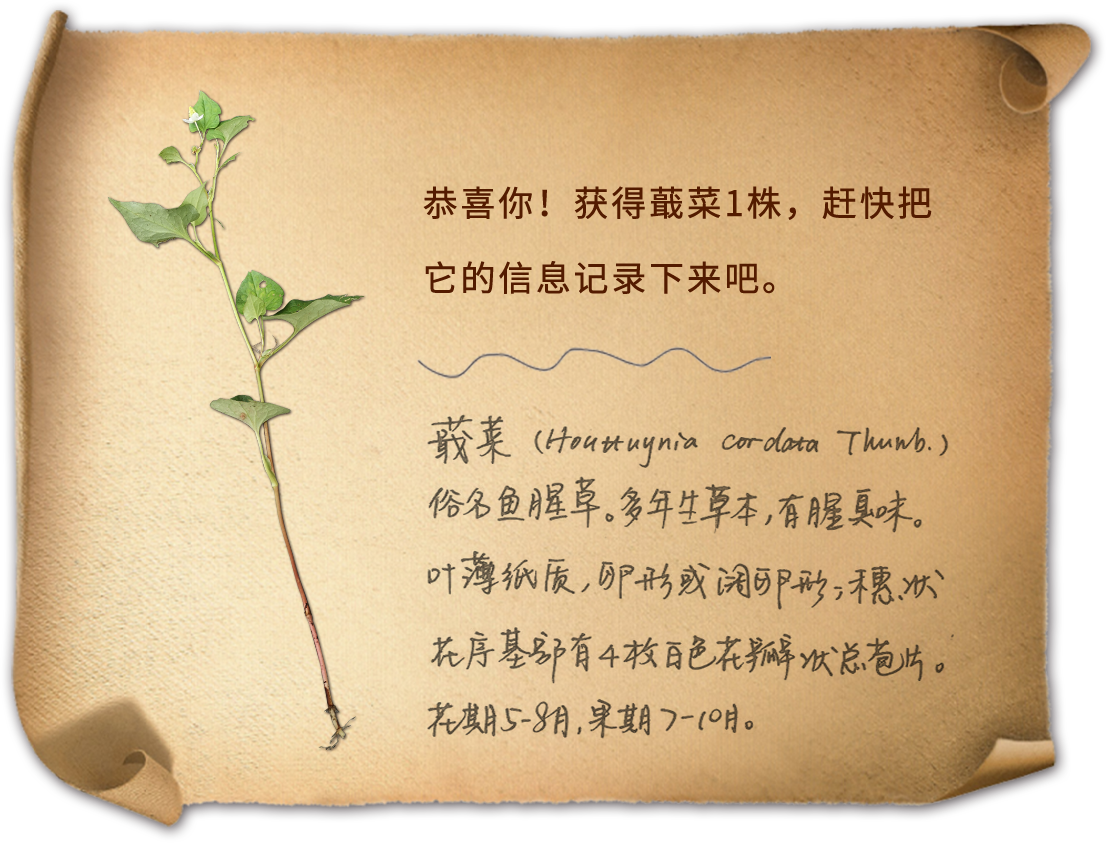 恭喜你！获得蕺菜1株，赶快把
它的信息记录下来吧。
蕺菜（Houttuynia cordata Thunb.）
俗名鱼腥草。多年生草本，有腥臭味。
叶薄纸质，卵形或阔卵形；穗状
花序基部有4枚白色花瓣状总苞片。
花期5-8月，果期7-10月。